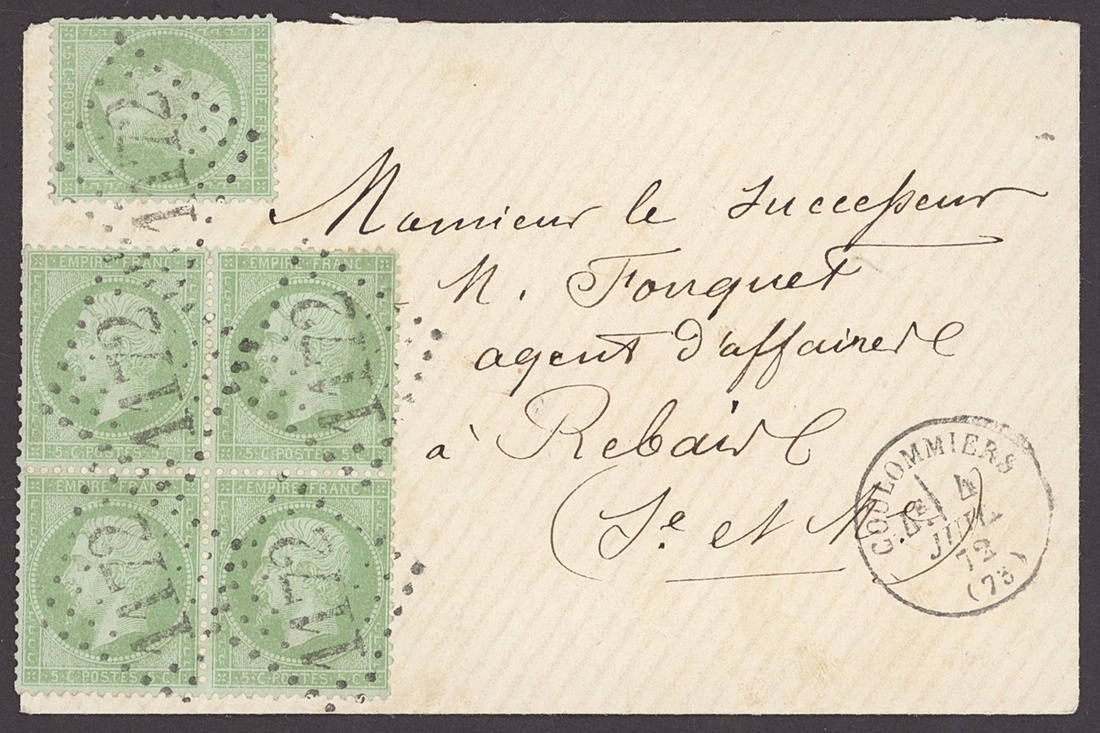 EMPIRE FRANC
5 C. POSTES 5 C.
1172
EMPIRE FRANC
EMPIRE FRANC
1172
1172
5 C. POSTES 5 C.
5 C. POSTES 5 C.
EMPIRE FRANC
EMPIRE FRANC
1172
1172
5 C. POSTES 5 C.
5 C. POSTES 5 C.
Monsieur le Successeur
M. Fouquet
agent d'affaires
à Rebais
(Se. et Me)
COULOMMIERS
4
JUIL.
72
(73)